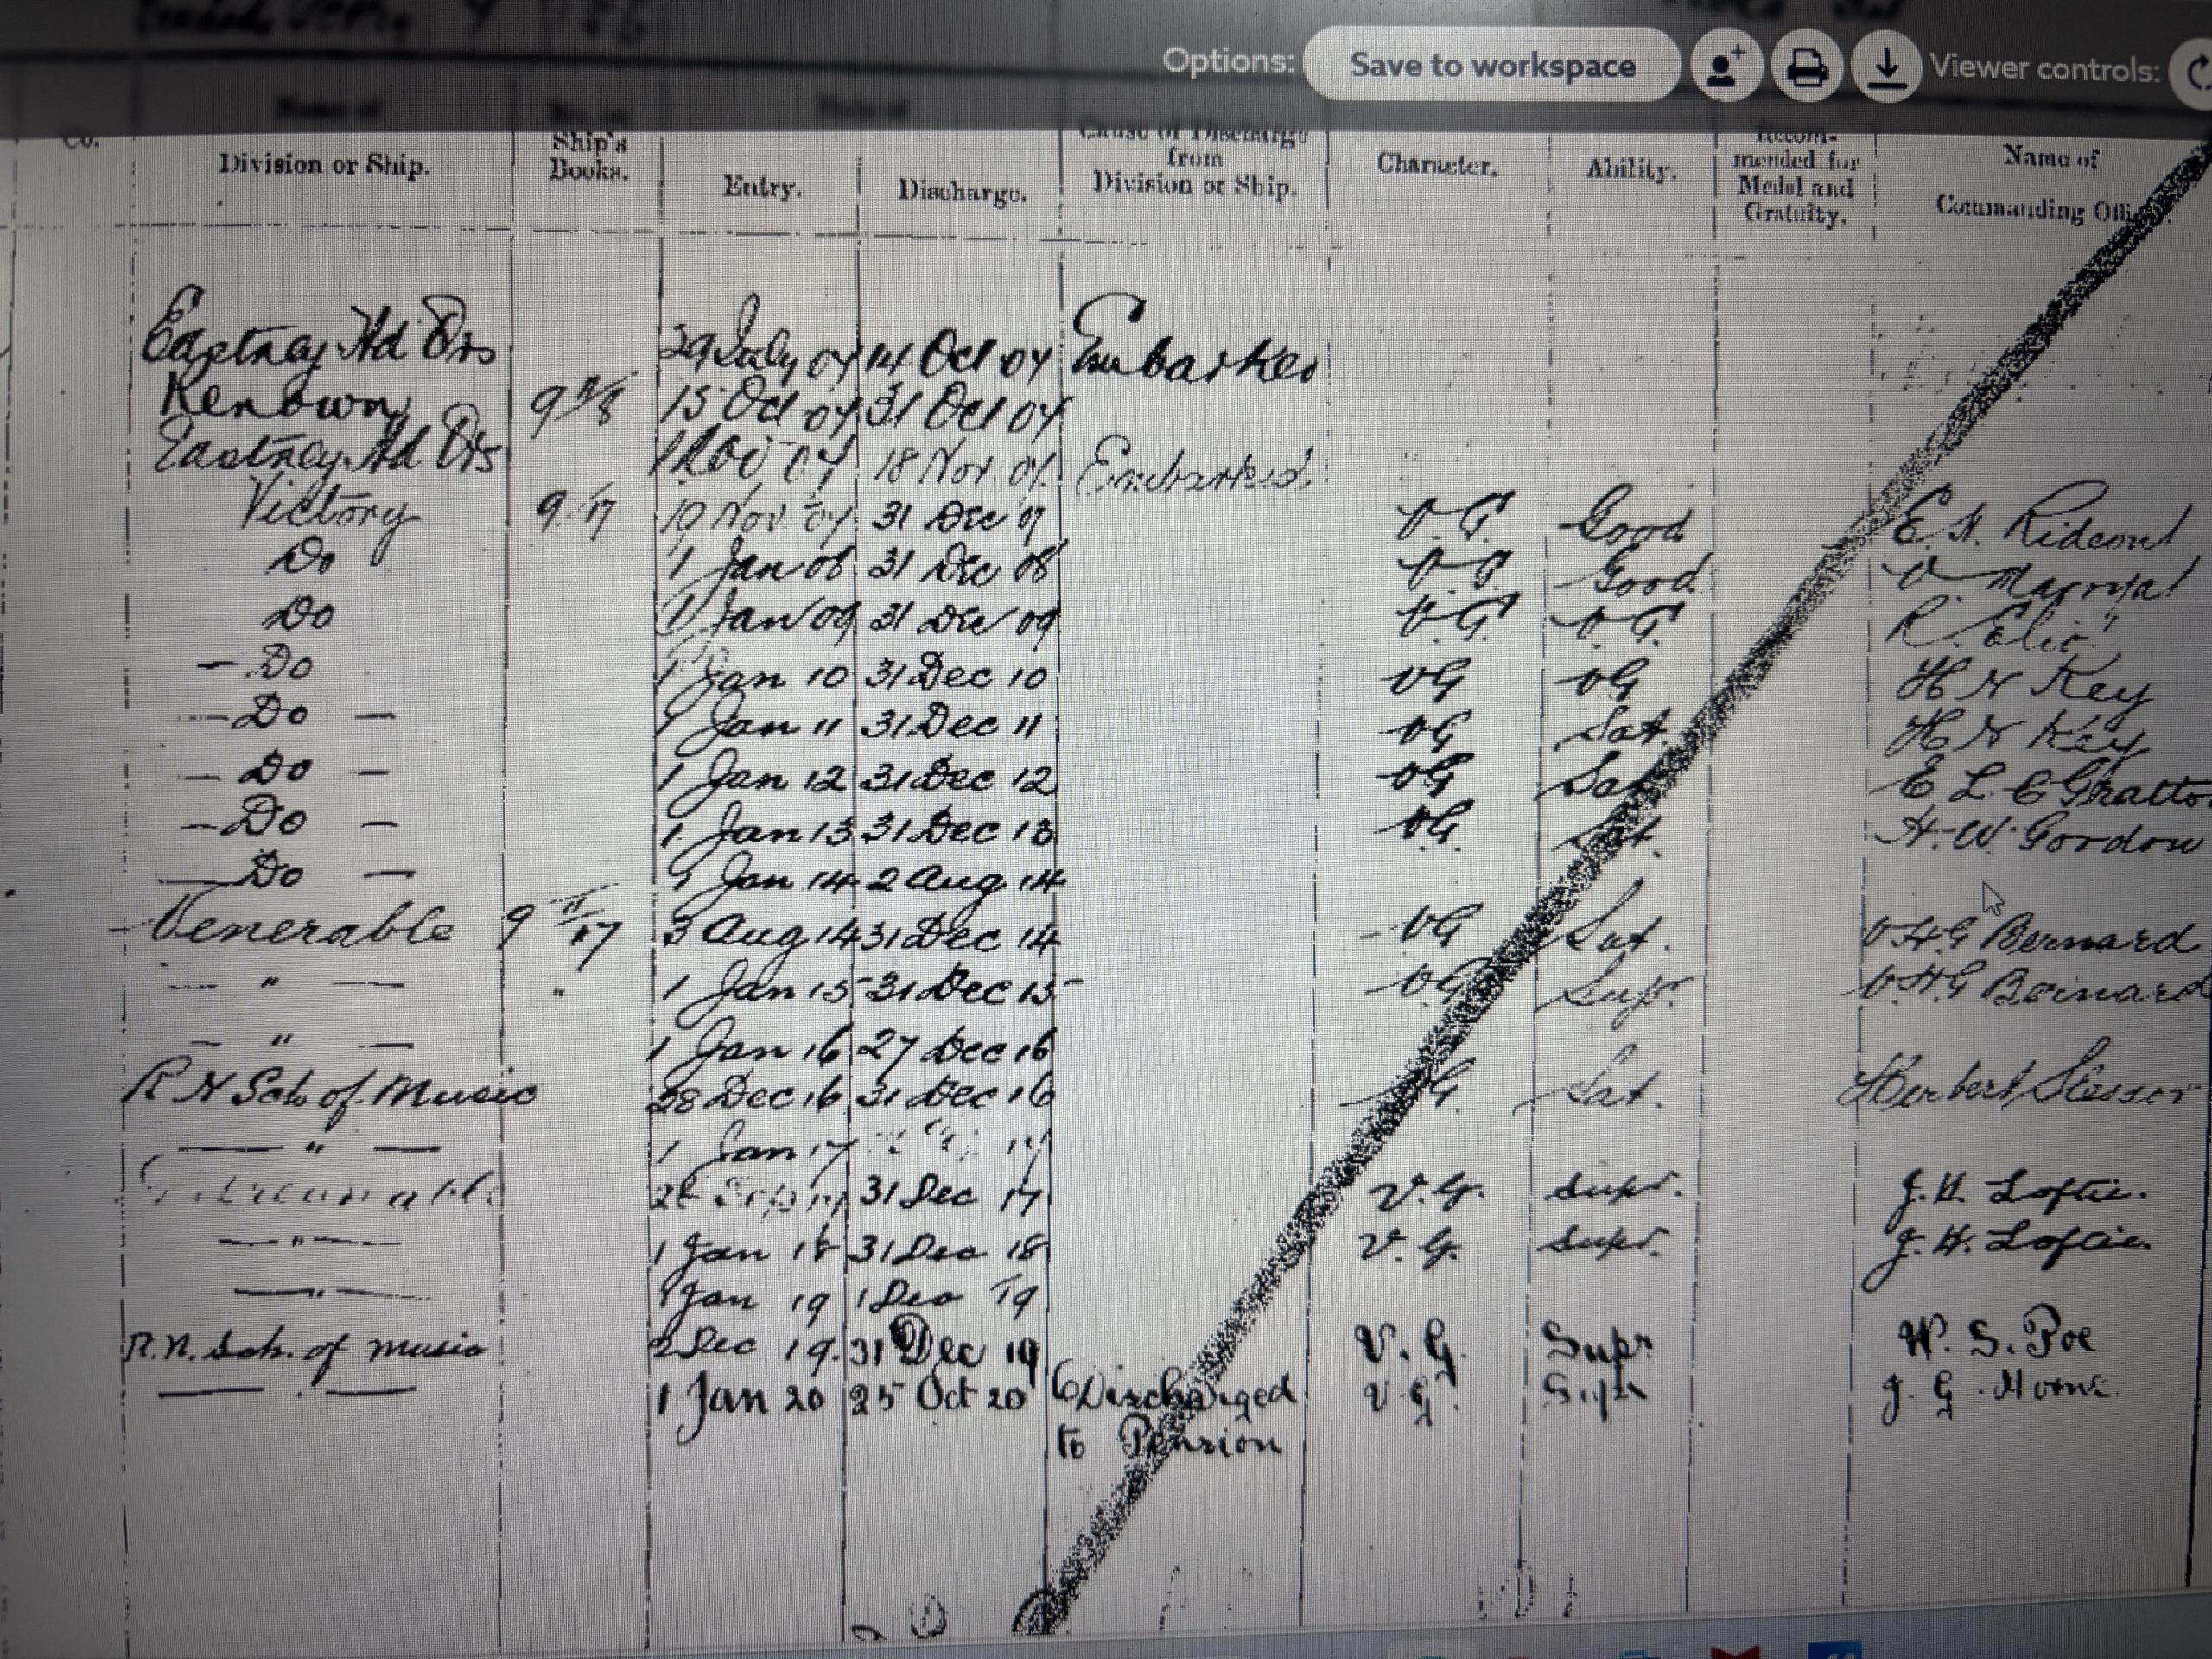 Options: Save to workspace Viewer controls:
Co. Division or Ship. Ship's Books. Entry. Discharge. Cause of Discharge from Division or Ship. Character. Ability. Recommended for Medal and Gratuity. Name of Commanding
Eastney Hd Qrs 29 July 07 14 Oct 07 Embarked
Renown 15 Oct 07 31 Oct 07
Eastney Hd Qrs 1 Nov 07 18 Nov. 07 Embarked
Victory 9/17 19 Nov. 07 31 Dec 07 V.G. Good E. A. Rideout
Do 1 Jan 08 31 Dec 08 V.G. Good
Do 1 Jan 09 31 Dec 09 V.G. V.G.
– Do 1 Jan 10 31 Dec 10 VG VG H N Key
– Do – 1 Jan 11 31 Dec 11 VG Sat. H N Key
– Do – 1 Jan 12 31 Dec 12 VG Sat E L C Gratto
– Do – 1 Jan 13 31 Dec 13 VG. Sat. H. W. Gordon
– Do – 1 Jan 14 2 Aug 14
Venerable 9 11/17 3 Aug 14 31 Dec 14 VG Sat. V H G Bernard
– " – " 1 Jan 15 31 Dec 15 VG Supr. V H G Bernard
– " – 1 Jan 16 27 Dec 16
R N Sch of Music 28 Dec 16 31 Dec 16 VG. Sat. Herbert Slessor
– " – 1 Jan 17
31 Dec 17 V.G. Supr. J. H. Loftie.
– " – 1 Jan 18 31 Dec 18 V.G. Supr. J. H. Loftie.
– " – 1 Jan 19 1 Dec 19
R.N. Sch. of Music 2 Dec 19. 31 Dec 19 V.G. Supr W. S. Poe
– " – 1 Jan 20 25 Oct 20 Discharged V.G. Supr J. G. Horne.
to Pension